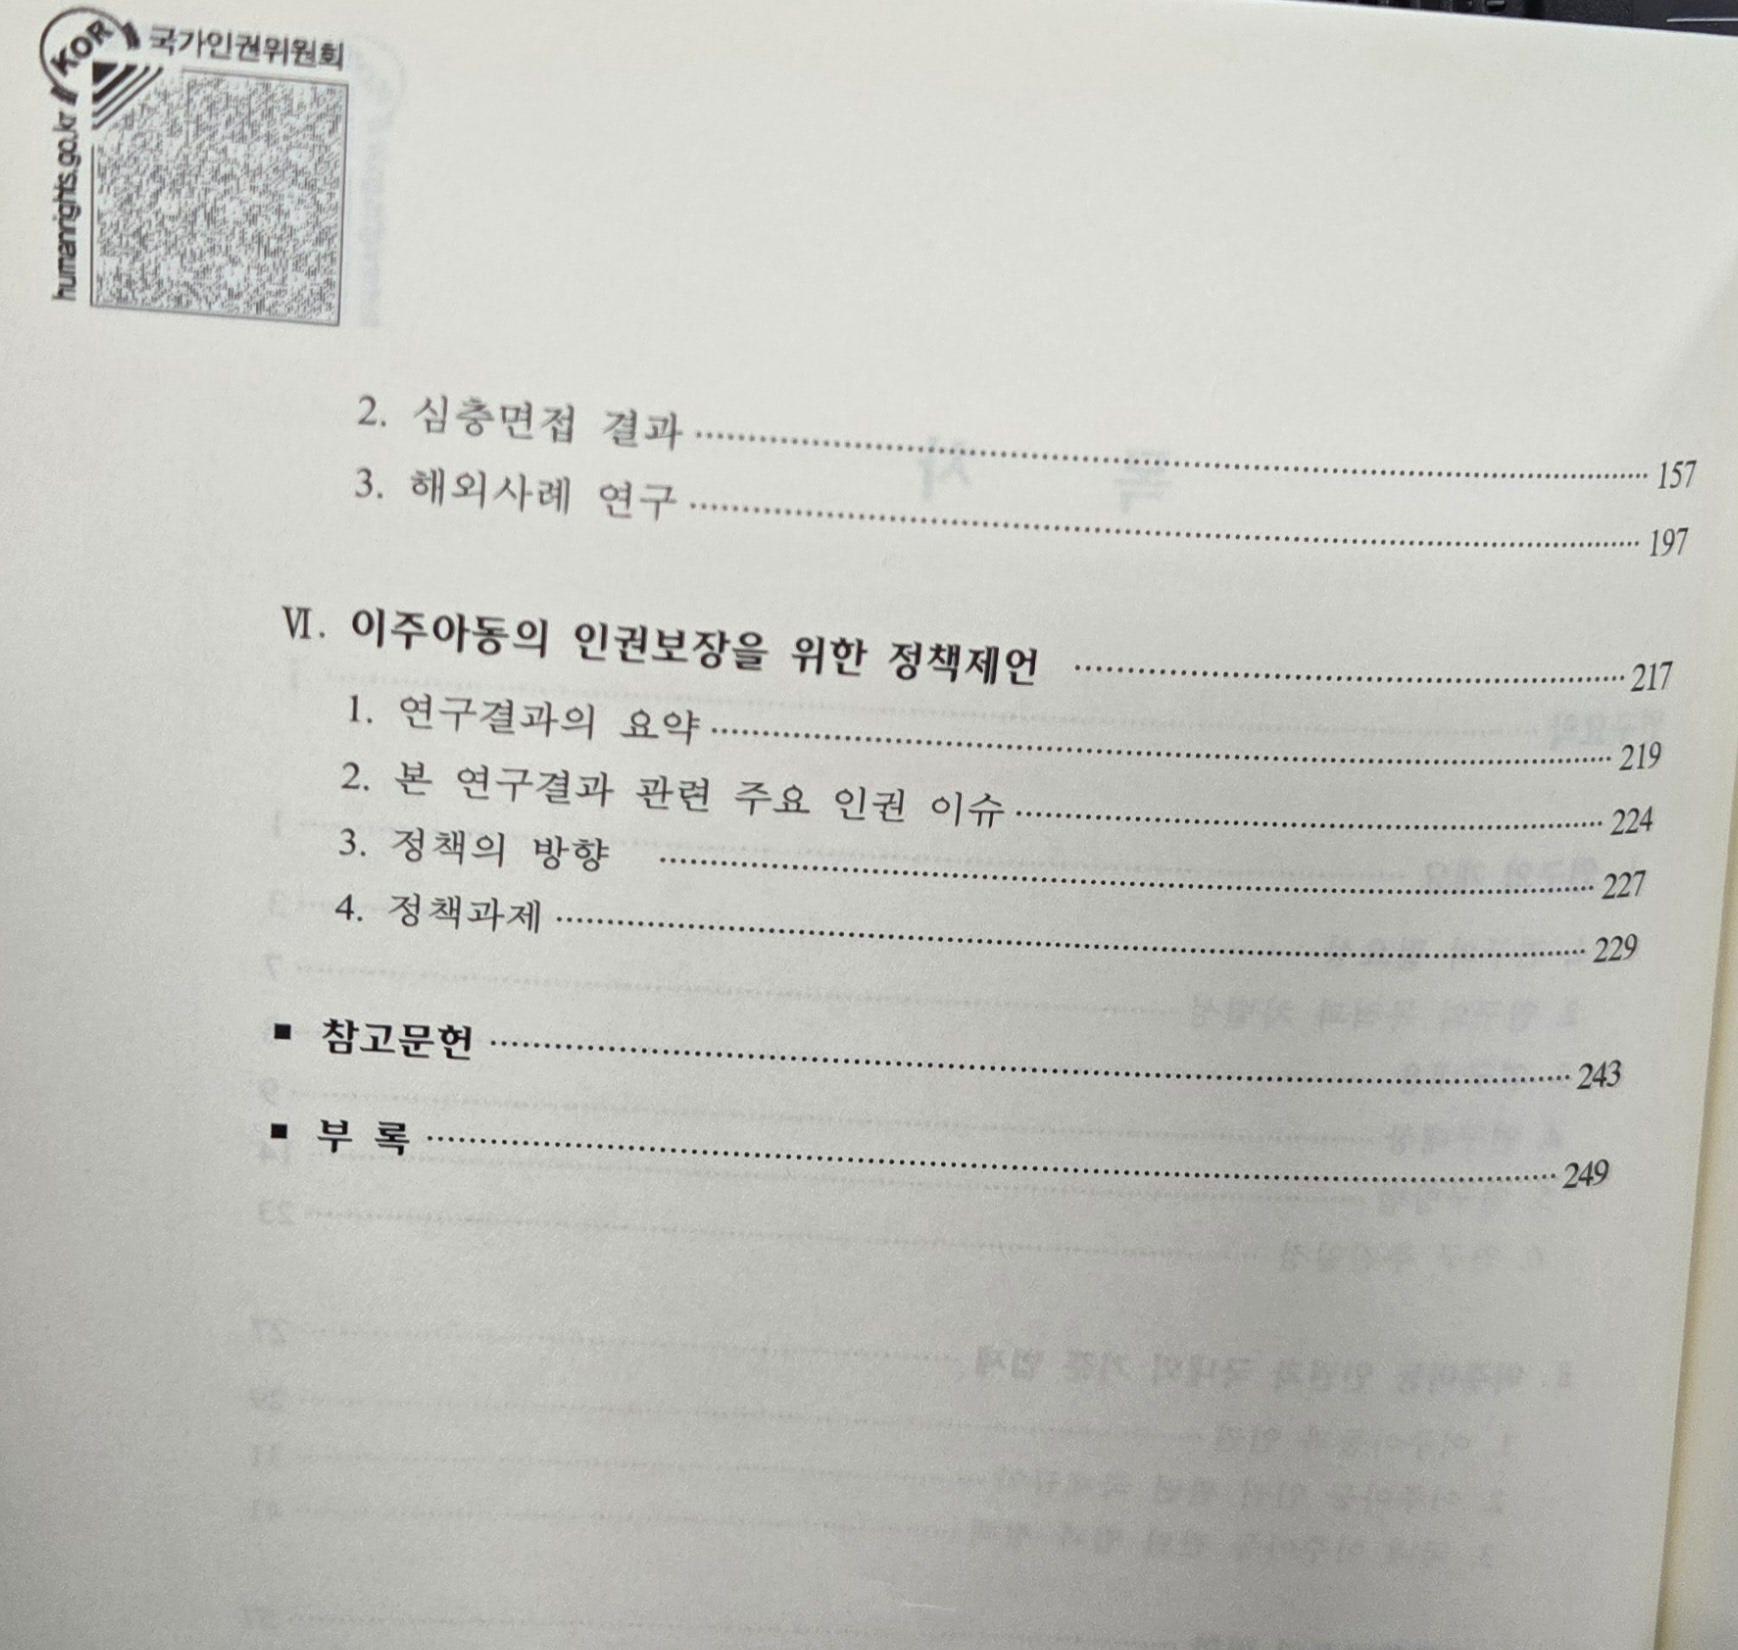 KOR 국가인권위원회
humanrights.go.kr
2. 심층면접 결과 157
3. 해외사례 연구 197
Ⅵ. 이주아동의 인권보장을 위한 정책제언 217
1. 연구결과의 요약 219
2. 본 연구결과 관련 주요 인권 이슈 224
3. 정책의 방향 227
4. 정책과제 229
■ 참고문헌 243
■ 부 록 249